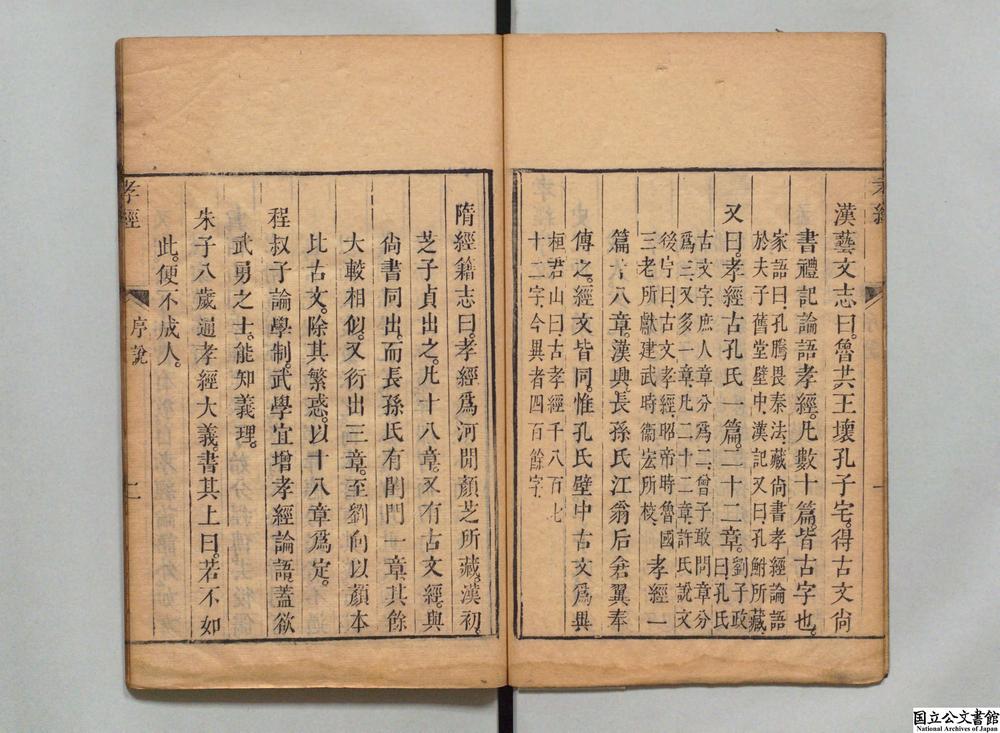 孝經
漢藝文志曰。魯共王壞孔子宅。得古文尙
書禮記論語孝經。凡數十篇。皆古字也。
家語曰。孔騰畏秦法。藏尙書孝經論語
於夫子舊堂壁中。漢記又曰。孔鮒所藏。
又曰。孝經古孔氏一篇。二十二章。劉子政曰。孔氏
古文字。庶人章分爲二。曾子敢問章分
爲三。又多一章。凡二十二章。許氏說文
後序曰。古文孝經。昭帝時魯國
三老所獻。建武時衞宏所校。
孝經一
篇。十八章。漢興。長孫氏江翁后倉翼奉
傳之。經文皆同。惟孔氏壁中古文爲異
桓君山曰。古孝經千八百七
十二字。今異者四百餘字。
隋經籍志曰。孝經爲河閒顏芝所藏。漢初。
芝子貞出之。凡十八章。又有古文經。與
尙書同出。而長孫氏有閨門一章。其餘
大較相似。又衍出三章。至劉向以顏本
比古文。除其繁惑。以十八章爲定。
程叔子論學制。武學宜增孝經論語。蓋欲
武勇之士。能知義理。
朱子八歲通孝經大義。書其上曰。若不如
此。便不成人。
孝經
序說
二
国立公文書館
National Archives of Japan